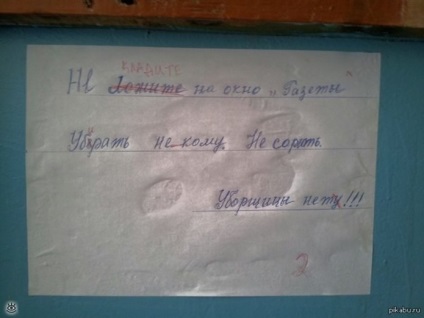 КЛАДИТЕ
Не ложите на окно „Газеты"
Убирать не кому. Не сорать.
Уборщицы нету!!!
2
pikabu.ru